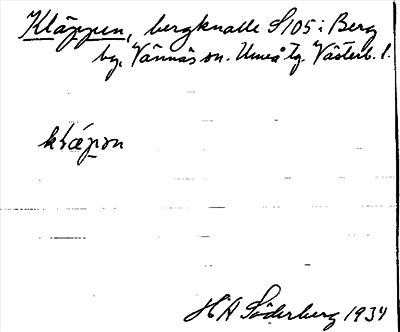 Kläppen, bergknalle S105 i Berg
by, Vännäs sn. Umeå tg. Västerb. l.
H A Söderberg 1934